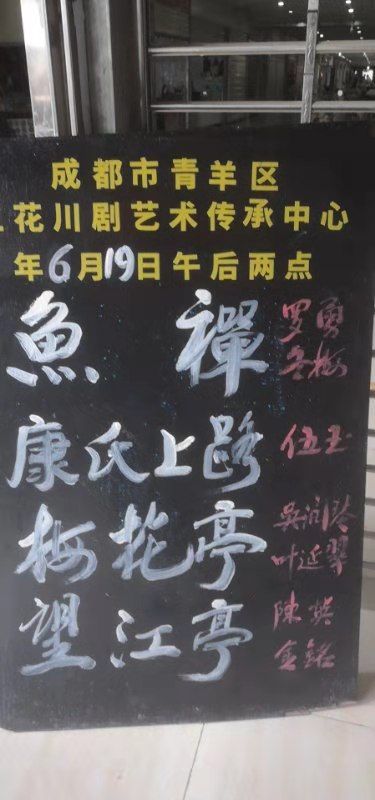 成都市青羊区
花川剧艺术传承中心
年6月19日午后两点
魚禪 罗勇
冬梅
康氏上路 伍玉
梅花亭 吴润
叶延翠
望江亭 陳英
金銘